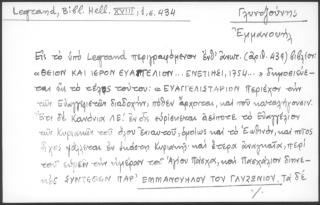 Legrand, Bibl. Hell. XVIII, 1, σ. 434
Γλυνζούνης
Ἐμμανουήλ
Εἰς τὸ ὑπὸ Legrand περιγραφόμενον ἐνθ' ἀνωτ. (ἀριθ. 434) βιβλίον:
«ΘΕΙΟΝ ΚΑΙ ΙΕΡΟΝ ΕΥΑΓΓΕΛΙΟΝ... ΕΝΕΤΙΗΣΙ, 1754...» δημοσιεύε-
ται εἰς τὸ τέλος τούτου: «ΕΥΑΓΓΕΛΙΣΤΑΡΙΟΝ Περιέχον τὴν
τῶν Εὐαγγελιστῶν διαδοχήν, πόθεν ἄρχονται, καὶ ποῦ καταλήγουσιν.
Ἔτι δὲ Κανόνια ΛΕ΄. ἐν οἷς εὑρίσκεται ἀκόπως τὸ Εὐαγγέλιον
τῶν Κυριακῶν τοῦ ὅλου ἐνιαυτοῦ, ὁμοίως καὶ τὸ Ἑωθινόν, καὶ ποῖος
ἦχος ψάλλεται ἐν ἑκάστῃ Κυριακῇ· καὶ ἕτερα ἀναγκαῖα, περὶ
τοῦ εὑρεῖν τὴν ἡμέραν τοῦ Ἁγίου Πάσχα, καὶ Πασχάλιον διηνε-
κές ΣΥΝΤΕΘΕΝ ΠΑΡ' ΕΜΜΑΝΟΥΗΛΟΥ ΤΟΥ ΓΛΥΖΕΝΙΟΥ. Τὰ δὲ
·/.